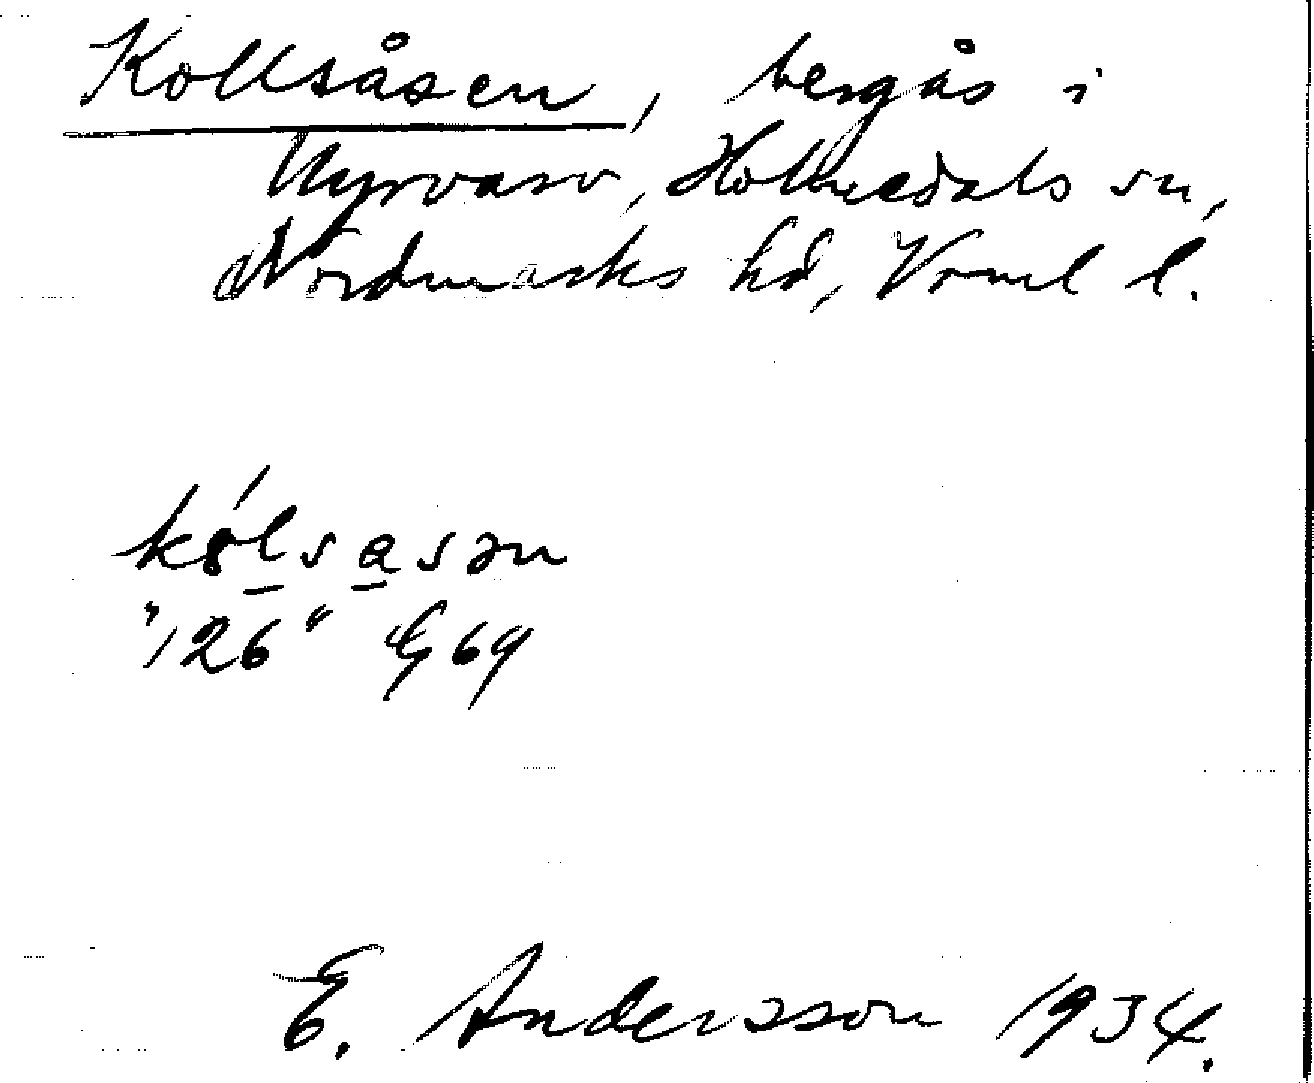 Kollsåsen, bergås i
Myrvarv, Holmedals sn,
Nordmarks hd, Vrml l.
kólsasən
"126" G 69
E. Andersson 1934.